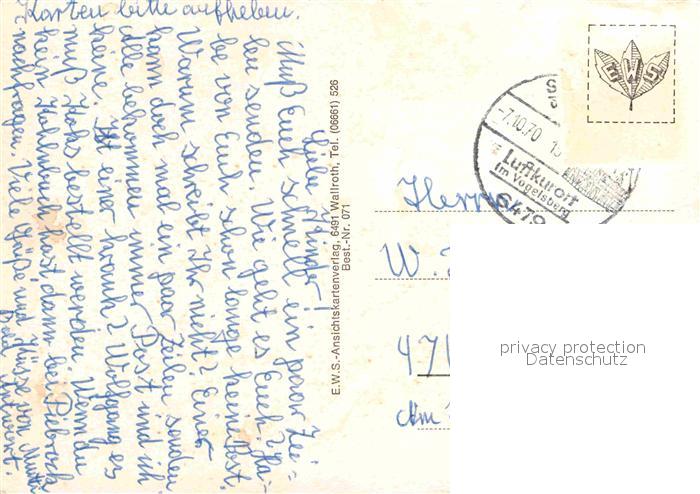 Karten bitte aufheben.
Liebe Kinder!
Muß Euch schnell ein paar Zei=
len senden. Wie geht es Euch? Ha=
be von Euch schon lange keine Post.
Warum schreibt Ihr nicht? Einer
kann doch mal ein paar Zeilen senden
alle bekommen immer Post und ich
keine. Ist einer krank? Wolfgang es
muß Koks bestellt werden. Wenn du
kein hast, dann bei Piebrock
nachfragen. Viele Grüße und Küsse von Mutti
Antwort.
E.W.S.-Ansichtskartenverlag, 6491 Wallroth, Tel. (06661) 526
Best.-Nr. 071
EWS
-7.10.70
Luftkurort
im Vogelsberg
6479
Herrn
W.
471
Am
privacy protection
Datenschutz